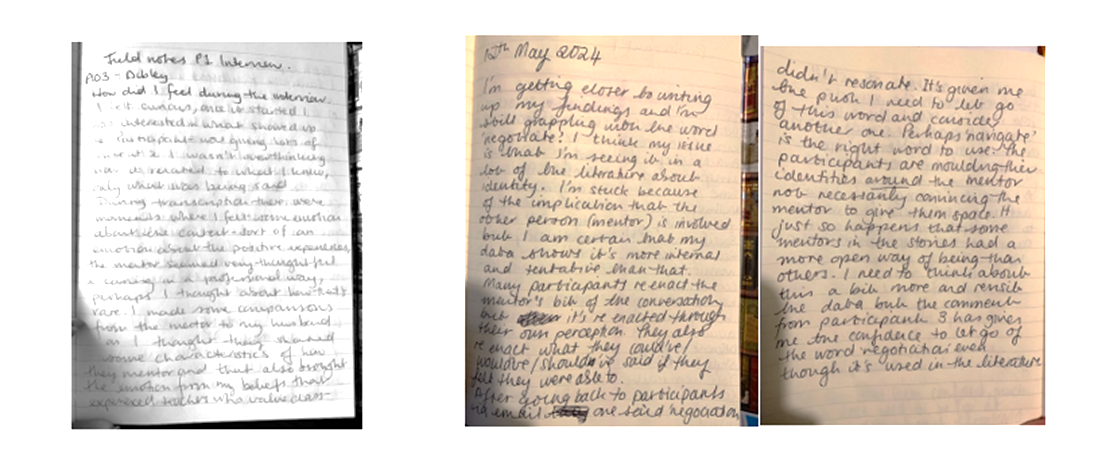 Field notes P1 Interview.
A03 - Dibley
How did I feel during the interview.
I felt curious, once it started I
was interested in what showed up
participant was giving lots of
I wasn't overthinking
related to what I knew,
only what was being said
During transcription there were
moments where I felt some emotion
about the content - sort of an
emotion about the positive experiences,
the mentor seemed very thoughtful
& caring in a professional way,
perhaps I thought about how that's
rare. I made some comparisons
from the mentor to my husband
as I thought they shared
some characteristics of how
they mentor and that also brought
the emotion from my beliefs that
experienced teachers who value class-
12th May 2024
I'm getting closer to writing
up my findings and I'm
still grappling with the word
'negotiate'! I think my issue
is that I'm seeing it in a
lot of the literature about
identity. I'm stuck because
of the implication that the
other person (mentor) is involved
but I am certain that my
data shows it's more internal
and tentative than that.
Many participants re enact the
mentor's bit of the conversation
but it's re enacted through
their own perception. They also
re enact what they could've/
would've/shouldn've said if they
felt they were able to.
After going back to participants
via email one said 'negotiation'
didn't resonate. It's given me
the push I need to let go
of this word and consider
another one. Perhaps 'navigate'
is the right word to use. The
participants are moulding their
identities around the mentor
not necessarily convincing the
mentor to give them space. It
just so happens that some
mentors in the stories had a
more open way of being than
others. I need to think about
this a bit more and revisit
the data but the comment
from participant 3 has given
me the confidence to let go of
the word 'negotiation' even
though it's used in the literature